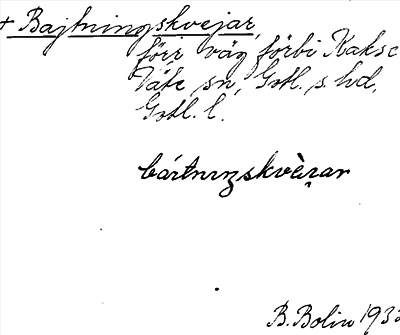 + Bajtningskvejar,
förr väg förbi Kakse
Väte sn, Gotl. s. hd,
Gotl. l.
B. Bolin 193